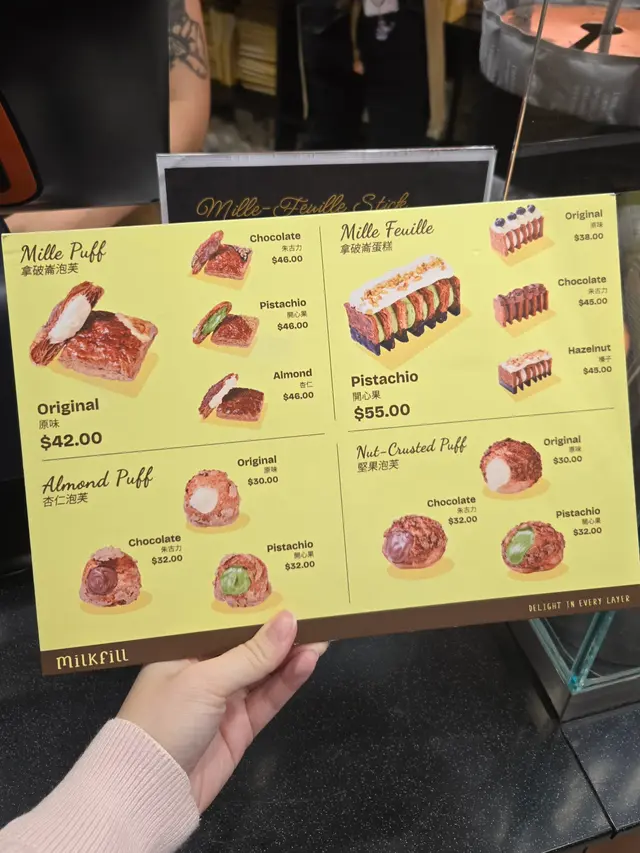 Mille-Feuille Stick
Mille Puff
拿破崙泡芙
Original
原味
$42.00
Chocolate
朱古力
$46.00
Pistachio
開心果
$46.00
Almond
杏仁
$46.00
Mille Feuille
拿破崙蛋糕
Pistachio
開心果
$55.00
Original
原味
$38.00
Chocolate
朱古力
$45.00
Hazelnut
榛子
$45.00
Almond Puff
杏仁泡芙
Original
原味
$30.00
Chocolate
朱古力
$32.00
Pistachio
開心果
$32.00
Nut-Crusted Puff
堅果泡芙
Original
原味
$30.00
Chocolate
朱古力
$32.00
Pistachio
開心果
$32.00
milkfill
DELIGHT IN EVERY LAYER